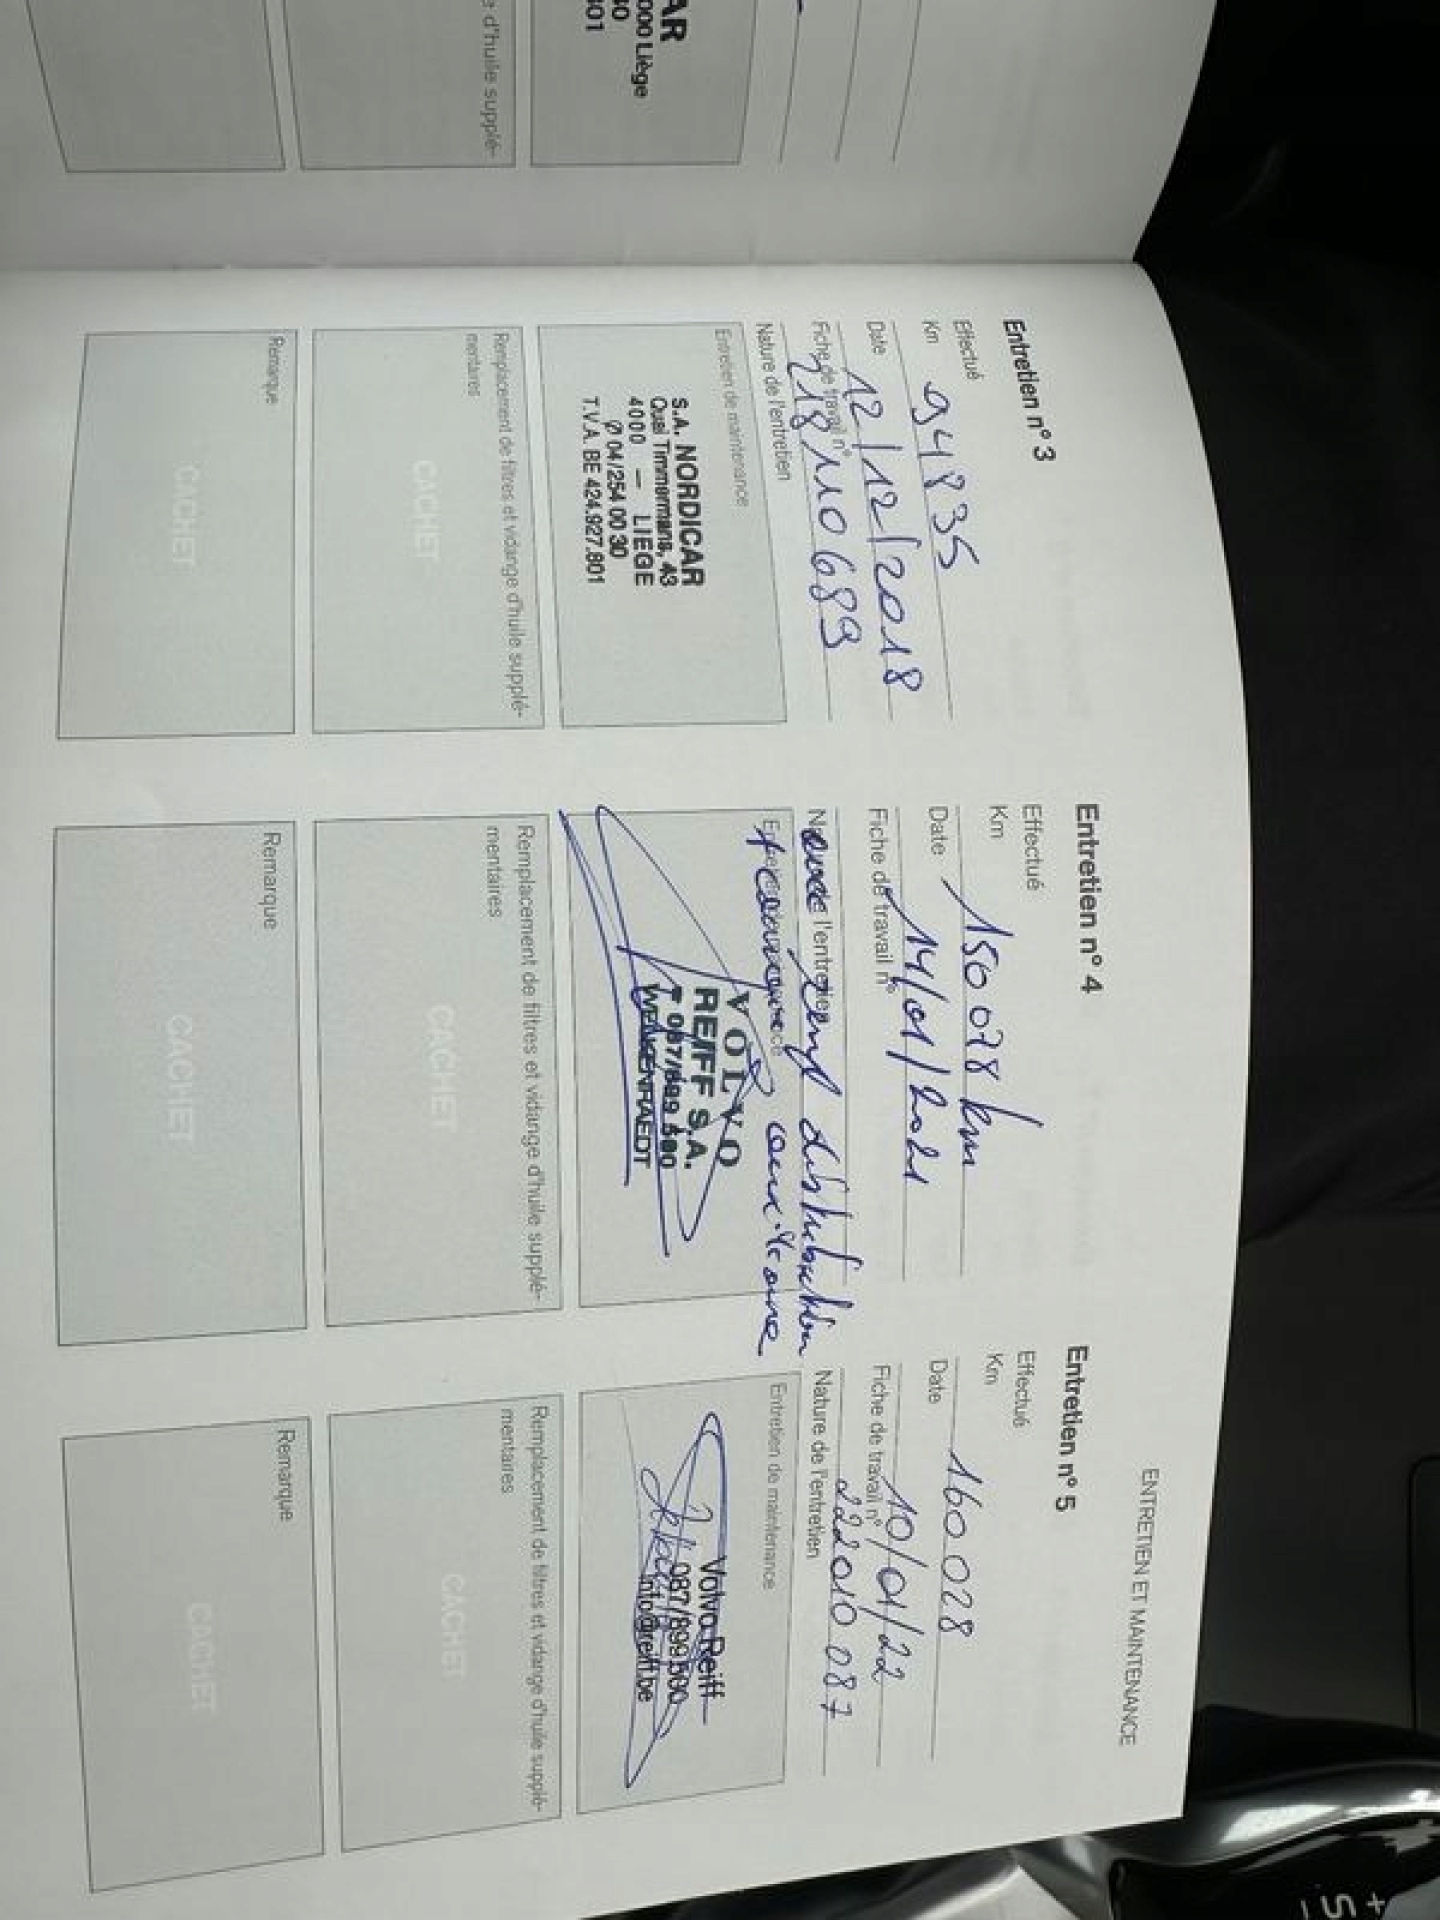 AR
000 Liège
40
801
e d'huile supplé-
ENTRETIEN ET MAINTENANCE
Entretien n° 3
Effectué
Km 94835
Date 12/12/2018
Fiche de travail n° 218110689
Nature de l'entretien
Entretien de maintenance
S.A. NORDICAR
Quai Timmermans, 43
4000 — LIEGE
Ø 04/254 00 30
T.V.A. BE 424.927.801
Remplacement de filtres et vidange d'huile supplé-
mentaires
CACHET
Remarque
CACHET
Entretien n° 4
Effectué
Km 150 078 km
Date 14/01/2021
Fiche de travail n°
Nature de l'entretien distribution
+ courroie
VOLVO
REIFF S.A.
T 087/899 500
WELKENRAEDT
Remplacement de filtres et vidange d'huile supplé-
mentaires
CACHET
Remarque
CACHET
Entretien n° 5
Effectué
Km 160 028
Date 10/01/22
Fiche de travail n° 22010 087
Nature de l'entretien
Entretien de maintenance
Volvo Reiff
087/899500
info@reiff.be
Remplacement de filtres et vidange d'huile supplé-
mentaires
CACHET
Remarque
CACHET
+
S
-